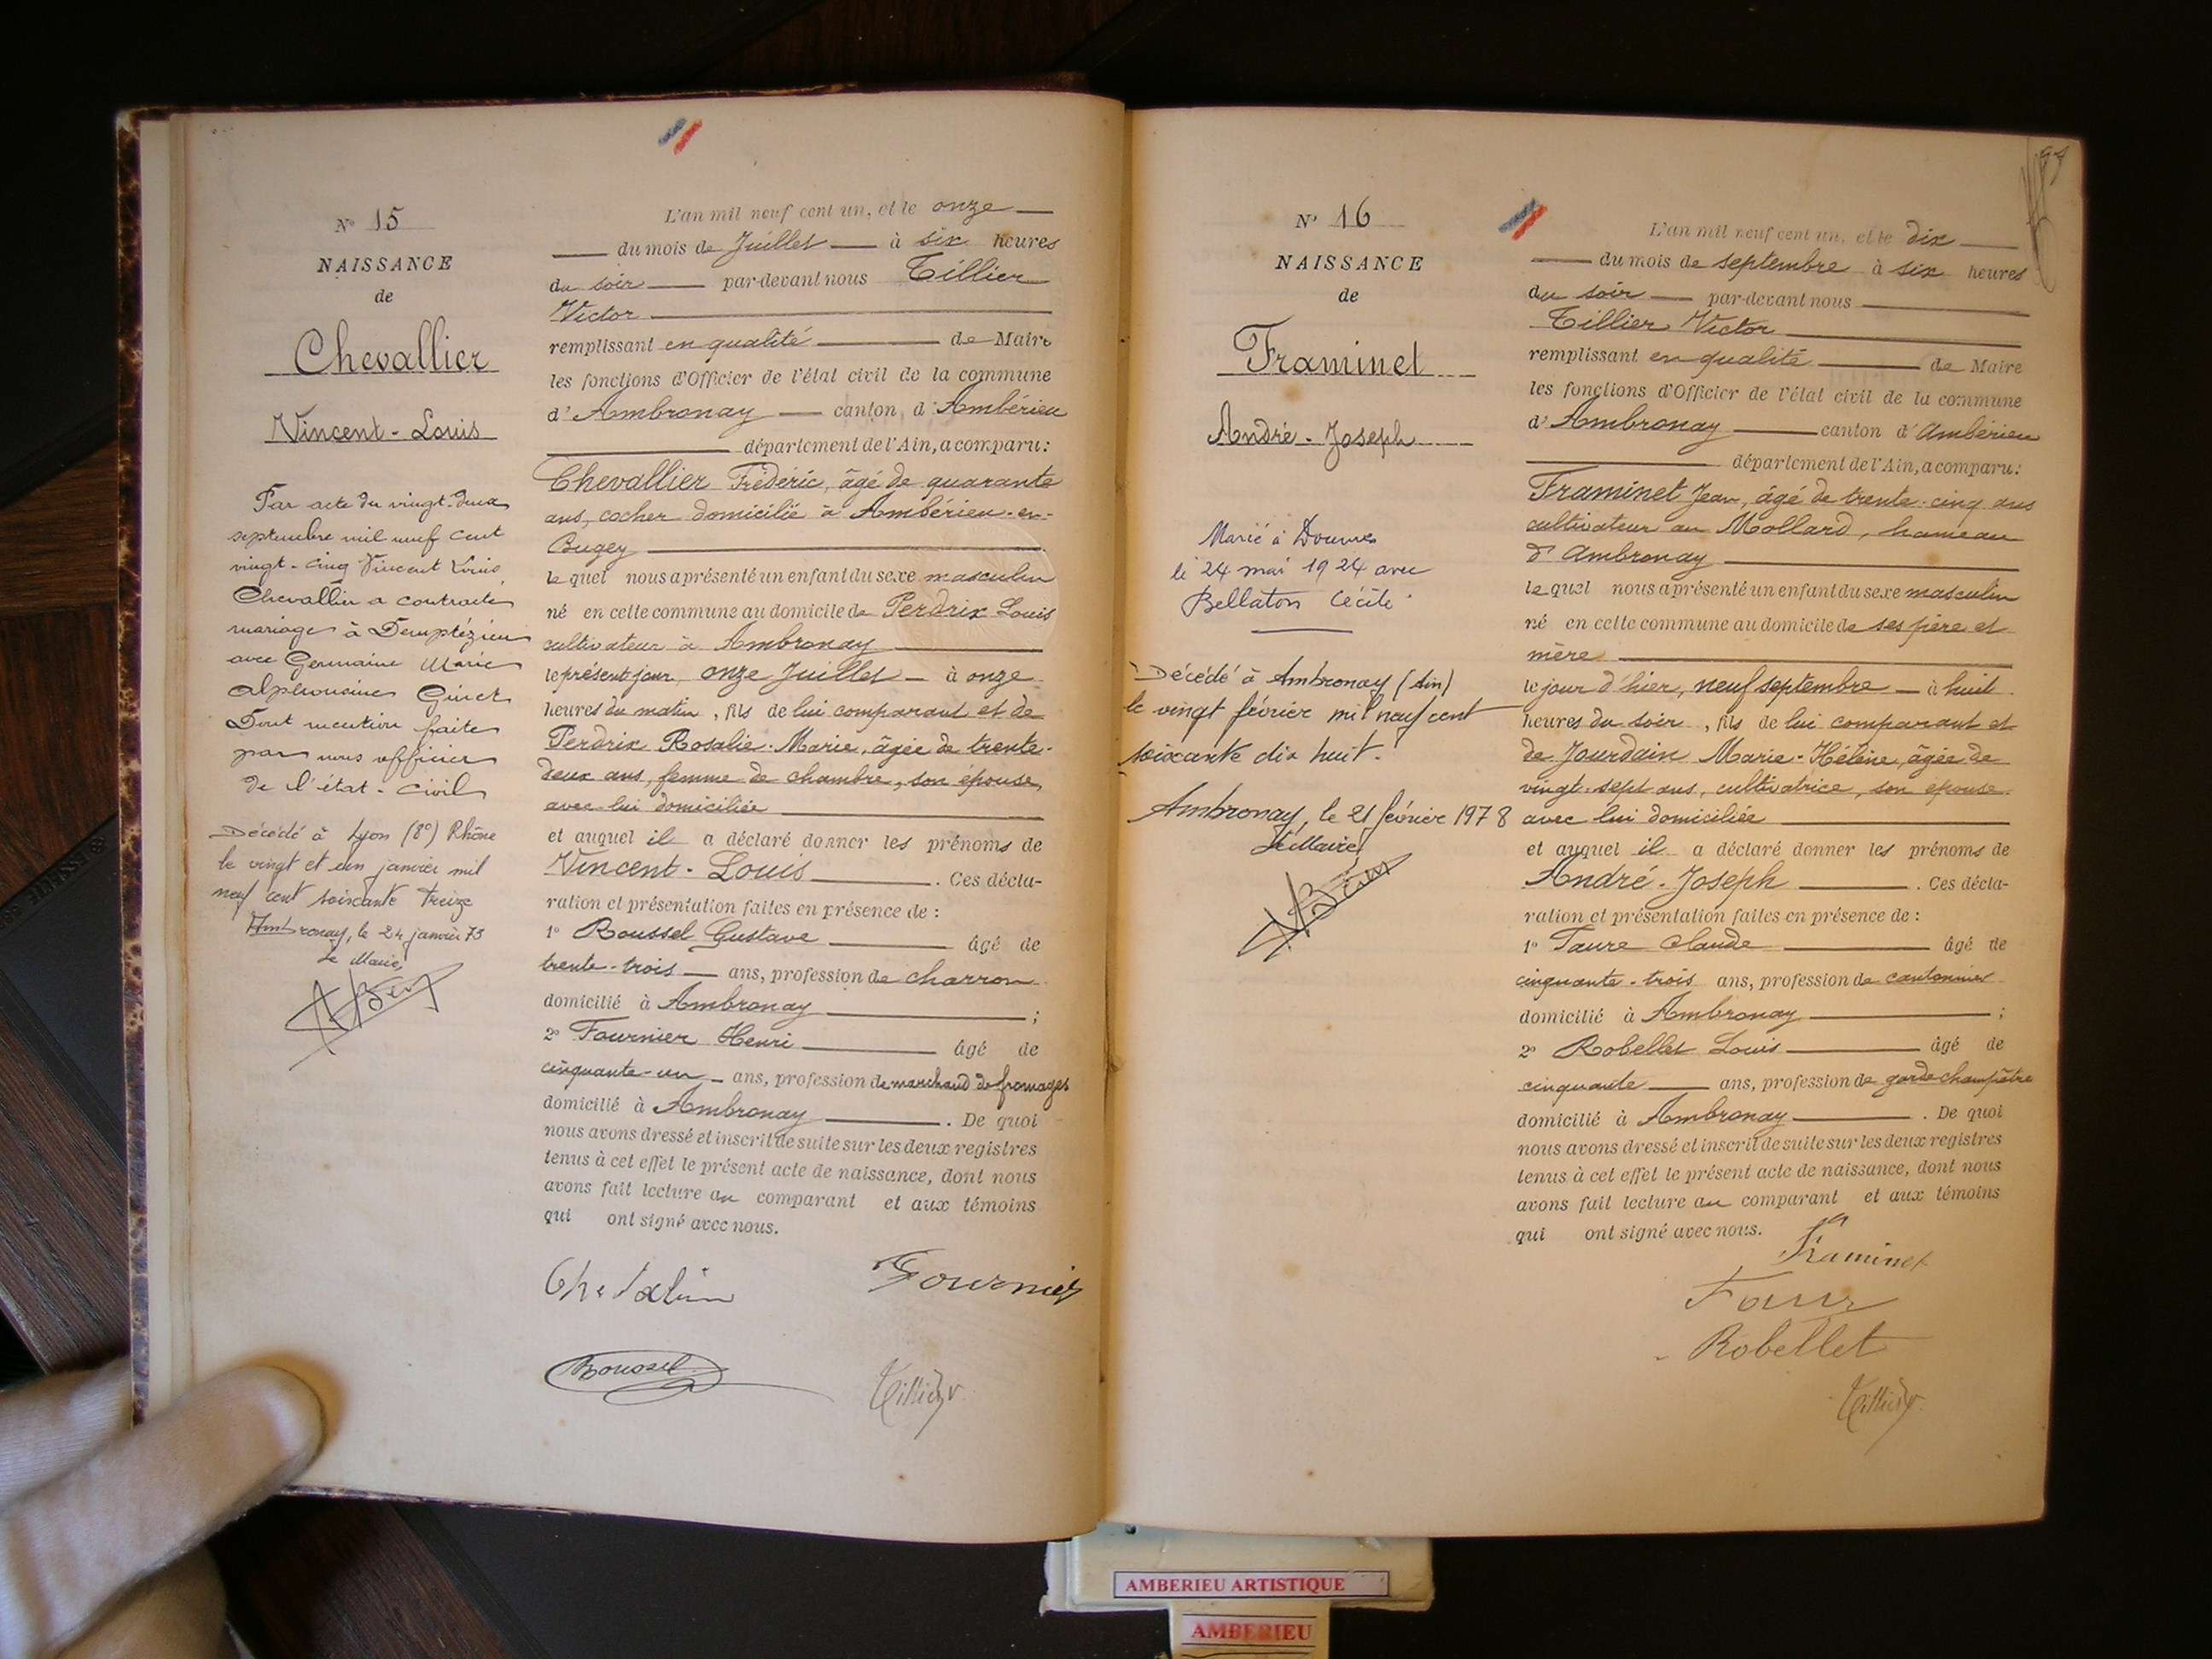 N° 15
NAISSANCE
de
Chevallier
Vincent-Louis
Par acte du vingt-deux
septembre mil neuf cent
vingt-cinq Vincent Louis
Chevallier a contracté
mariage à Demptézieu
avec Germaine Marie
Alphonsine Ginet
Dont mention faite
par nous officier
de l'état-civil
Décédé à Lyon (8°) Rhône
le vingt et un janvier mil
neuf cent soixante treize
Ambronay, le 24 janvier 73
Le Maire,
L'an mil neuf cent un, et le onze
du mois de Juillet à six heures
du soir par-devant nous Tillier
Victor
remplissant en qualité de Maire
les fonctions d'Officier de l'état civil de la commune
d'Ambronay canton d'Ambérieu
département de l'Ain, a comparu:
Chevallier Frédéric, âgé de quarante
ans, cocher domicilié à Ambérieu-en-
Bugey
lequel nous a présenté un enfant du sexe masculin
né en cette commune au domicile de Perdrix Louis
cultivateur à Ambronay
le présent jour, onze Juillet à onze
heures du matin, fils de lui comparant et de
Perdrix Rosalie-Marie, âgée de trente-
deux ans, femme de chambre, son épouse,
avec lui domiciliée
et auquel il a déclaré donner les prénoms de
Vincent-Louis. Ces décla-
ration et présentation faites en présence de :
1° Roussel Gustave âgé de
trente-trois ans, profession de charron
domicilié à Ambronay ;
2° Fournier Henri âgé de
cinquante-un ans, profession de marchand de fromages
domicilié à Ambronay. De quoi
nous avons dressé et inscrit de suite sur les deux registres
tenus à cet effet le présent acte de naissance, dont nous
avons fait lecture au comparant et aux témoins
qui ont signé avec nous.
Chevalier Fournier
Roussel Tillier V
N° 16
NAISSANCE
de
Framinet
André-Joseph
Marié à Douvres
le 24 mai 1924 avec
Bellaton Cécile
Décédé à Ambronay (Ain)
le vingt février mil neuf cent
soixante dix huit.
Ambronay, le 21 février 1978
Le Maire,
L'an mil neuf cent un, et le dix
du mois de septembre à six heures
du soir par-devant nous
Tillier Victor
remplissant en qualité de Maire
les fonctions d'Officier de l'état civil de la commune
d'Ambronay canton d'Ambérieu
département de l'Ain, a comparu:
Framinet Jean, âgé de trente-cinq ans
cultivateur au Mollard, hameau
d'Ambronay
lequel nous a présenté un enfant du sexe masculin
né en cette commune au domicile de ses père et
mère
le jour d'hier, neuf septembre à huit
heures du soir, fils de lui comparant et
de Jourdain Marie-Hélène, âgée de
vingt-sept ans, cultivatrice, son épouse
avec lui domiciliée
et auquel il a déclaré donner les prénoms de
André-Joseph. Ces décla-
ration et présentation faites en présence de :
1° Faure Claude âgé de
cinquante-trois ans, profession de cantonnier
domicilié à Ambronay ;
2° Robellet Louis âgé de
cinquante ans, profession de garde champêtre
domicilié à Ambronay. De quoi
nous avons dressé et inscrit de suite sur les deux registres
tenus à cet effet le présent acte de naissance, dont nous
avons fait lecture au comparant et aux témoins
qui ont signé avec nous.
Framinet
Faure
Robellet
Tillier V
AMBERIEU ARTISTIQUE
AMBERIEU